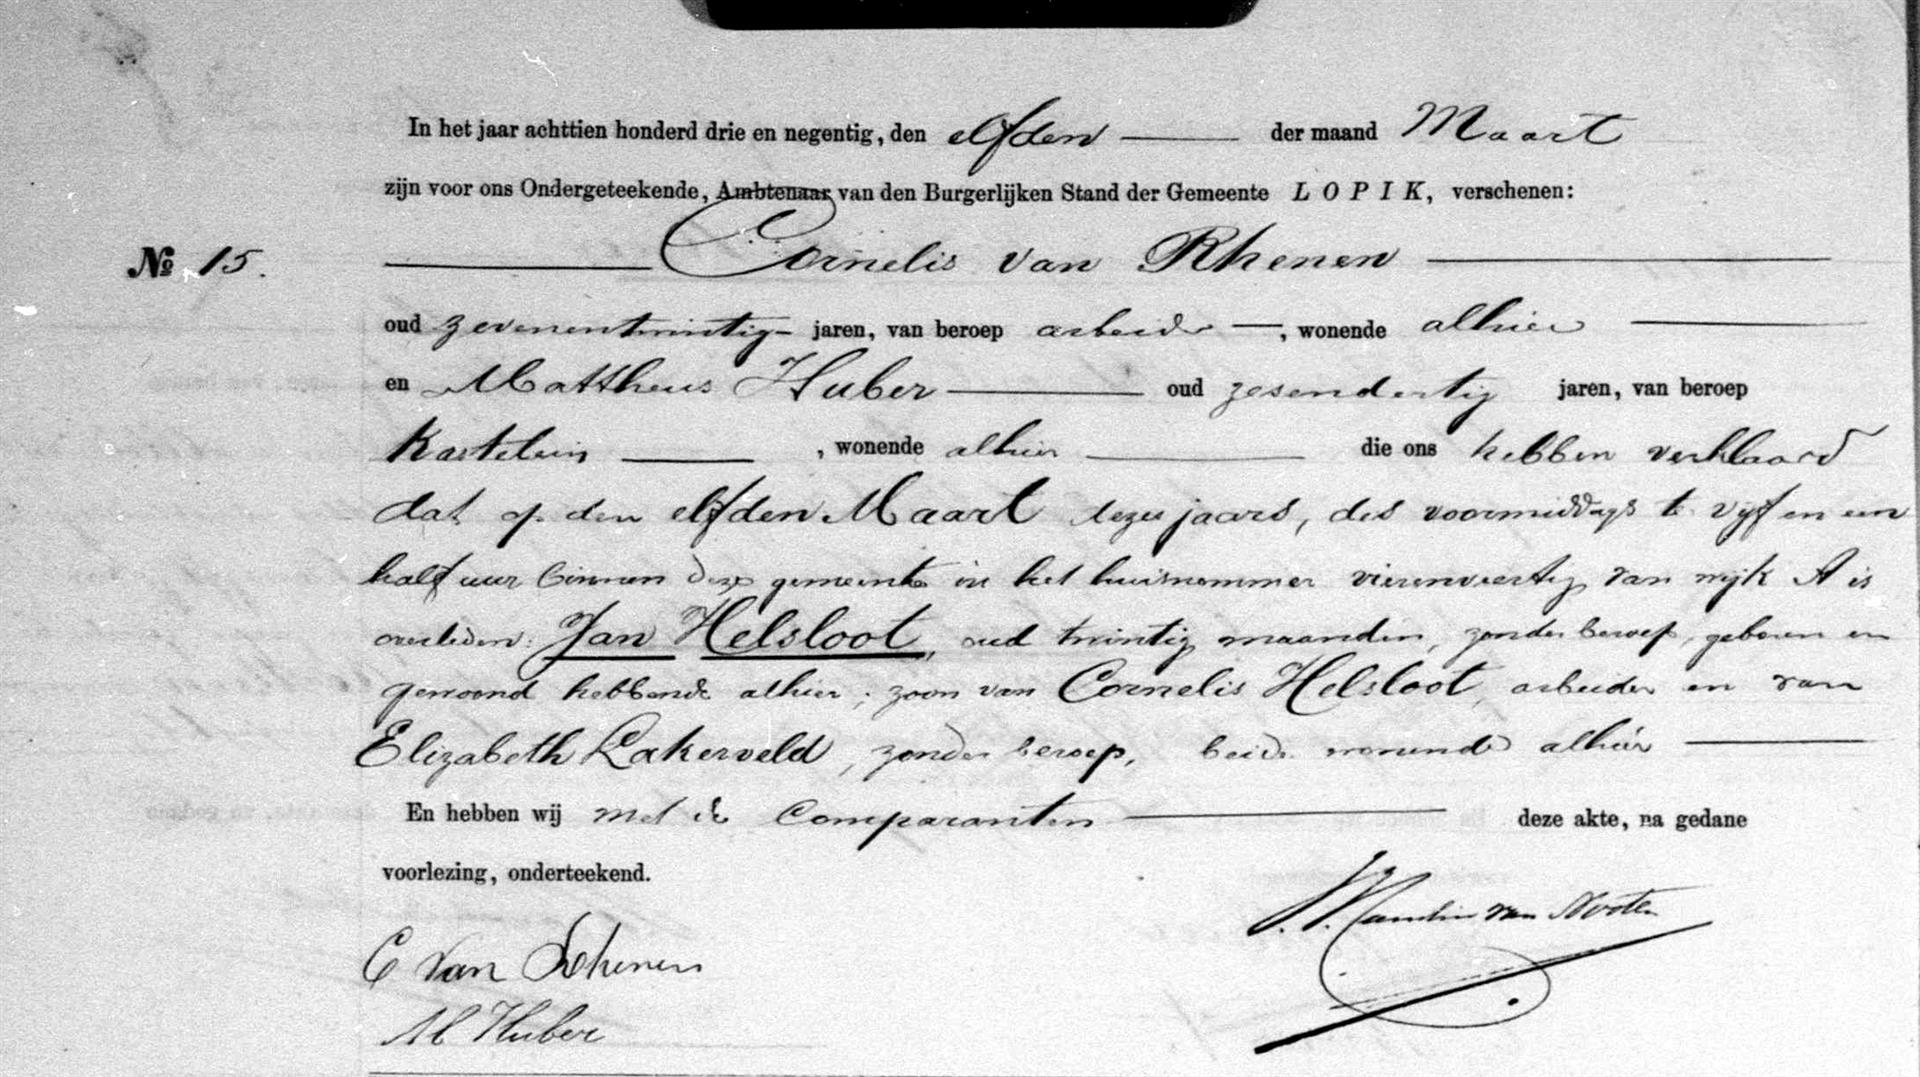 In het jaar achttien honderd drie en negentig, den elfden der maand Maart
zijn voor ons Ondergeteekende, Ambtenaar van den Burgerlijken Stand der Gemeente LOPIK, verschenen:
No 15. Cornelis van Rhenen
oud zevenentwintig jaren, van beroep arbeider, wonende alhier
en Mattheus Huber oud zesendertig jaren, van beroep
Kastelein, wonende alhier die ons hebben verklaard
dat op den elfden Maart dezes jaars, des voormiddags te vijf en een
half uur binnen deze gemeente in het huisnommer vierenveertig van wijk A is
overleden: Jan Helsloot, oud twintig maanden, zonder beroep, geboren en
gewoond hebbende alhier; zoon van Cornelis Helsloot, arbeider en van
Elizabeth Lakerveld, zonder beroep, beide wonende alhier
En hebben wij met de Comparanten deze akte, na gedane
voorlezing, onderteekend.
van Nooten
C van Rhenen
M Huber